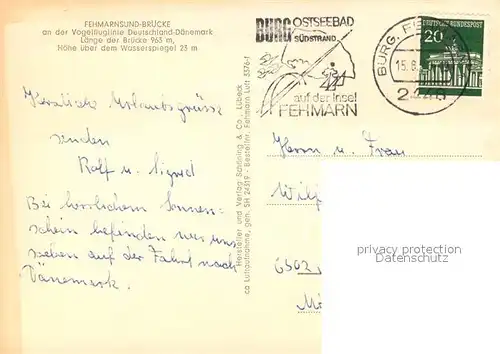 FEHMARNSUND-BRÜCKE
an der Vogelfluglinie Deutschland-Dänemark
Länge der Brücke 963 m.
Höhe über dem Wasserspiegel 23 m
Herzliche Urlaubsgrüsse
senden
Rolf u. Sigrid
Bei herrlichem Sonnen-
schein befinden wir uns
soeben auf der Fahrt nach
Dänemark.
Hersteller und Verlag Schöning & Co., Lübeck
Luftaufnahme, gen. SH 24319 - Bestellnr. Fehmarn Luft 3376-1
BURG OSTSEEBAD
SÜDSTRAND
auf der Insel
FEHMARN
BURG, FE
15.8.
2448
DEUTSCHE BUNDESPOST
20
Herrn u. Frau
6502
privacy protection
DatenSchutz